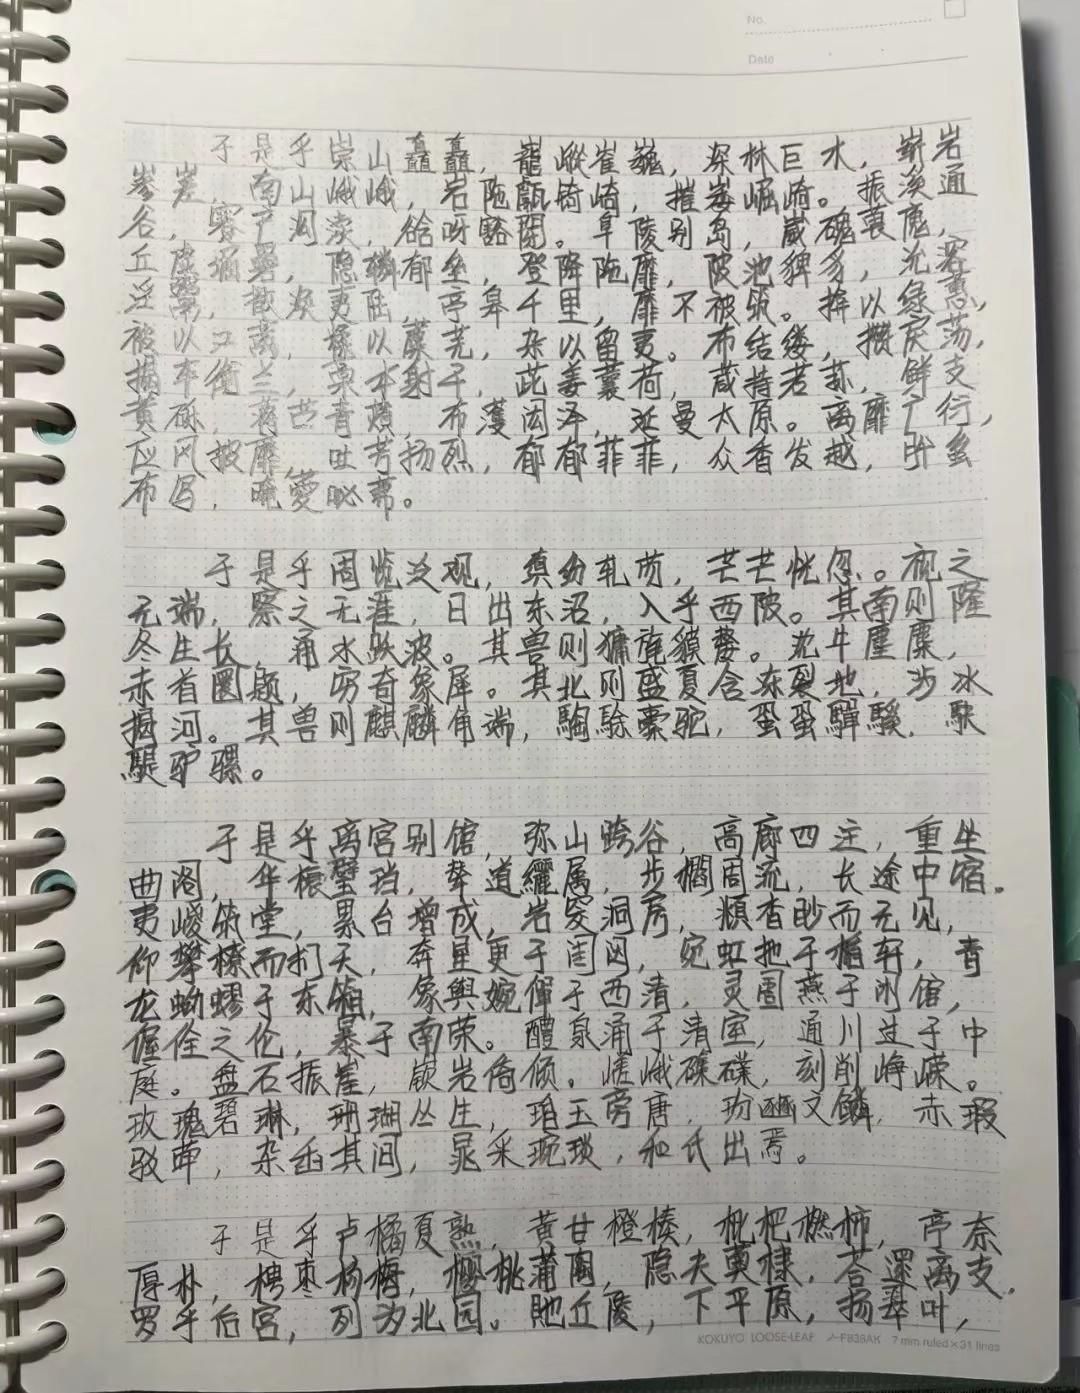 No.
Date
于是乎崇山矗矗，巃嵷崔巍，深林巨水，崭岩
嵾差，南山峨峨，岩陁甗锜崎，摧崣崛崎。振溪通
谷，蹇产沟渎，谽呀豁閕。阜陵别岛，崴磈
丘虚堀礨，隐辚郁垒，登降陁靡，陂池貏豸，沇溶
淫鬻，散涣夷陆，亭皋千里，靡不被筑。揜以绿蕙，
被以江离，糅以蘼芜，杂以留夷。布结缕，攒戾莎，
揭车衡兰，槀本射干，茈姜蘘荷，葴持若荪，鲜支
黄砾，蒋芧青薠，布濩闳泽，延曼太原。离靡广衍，
应风披靡，吐芳扬烈，郁郁菲菲，众香发越，肸蚃
布写，晻薆咇茀。
于是乎周览泛观，缜纷轧芴，芒芒恍忽。视之
无端，察之无涯，日出东沼，入乎西陂。其南则隆
冬生长，涌水跃波。其兽则㺎旄貘犛。沈牛麈麋，
赤首圜题，穷奇象犀。其北则盛夏含冻裂地，涉冰
揭河。其兽则麒麟角端，騊駼橐驼，蛩蛩驒騱，駃
騠驴骡。
于是乎离宫别馆，弥山跨谷，高廊四注，重坐
曲阁，华榱璧珰，辇道纚属，步櫩周流，长途中宿。
夷嵕筑堂，累台增成，岩窔洞房，頫杳眇而无见，
仰攀橑而扪天，奔星更于闺闼，宛虹扡于楯轩，青
龙蚴蟉于东箱，象舆婉僤于西清，灵圄燕于闲馆，
偓佺之伦，暴于南荣。醴泉涌于清室，通川过于中
庭。盘石振崖，嵚岩倚倾。嵯峨磼碟，刻削峥嵘。
玫瑰碧琳，珊瑚丛生，珉玉旁唐，玢豳文鳞，赤瑕
驳荦，杂臿其间，晁采琬琰，和氏出焉。
于是乎卢橘夏熟，黄甘橙楱，枇杷橪柿，亭奈
厚朴，梬枣杨梅，樱桃蒲陶，隐夫薁棣，荅遝离支，
罗乎后宫，列为北园。貤丘陵，下平原，扬翠叶，
KOKUYO LOOSE-LEAF ノ-F836AK 7 mm ruled×31 lines